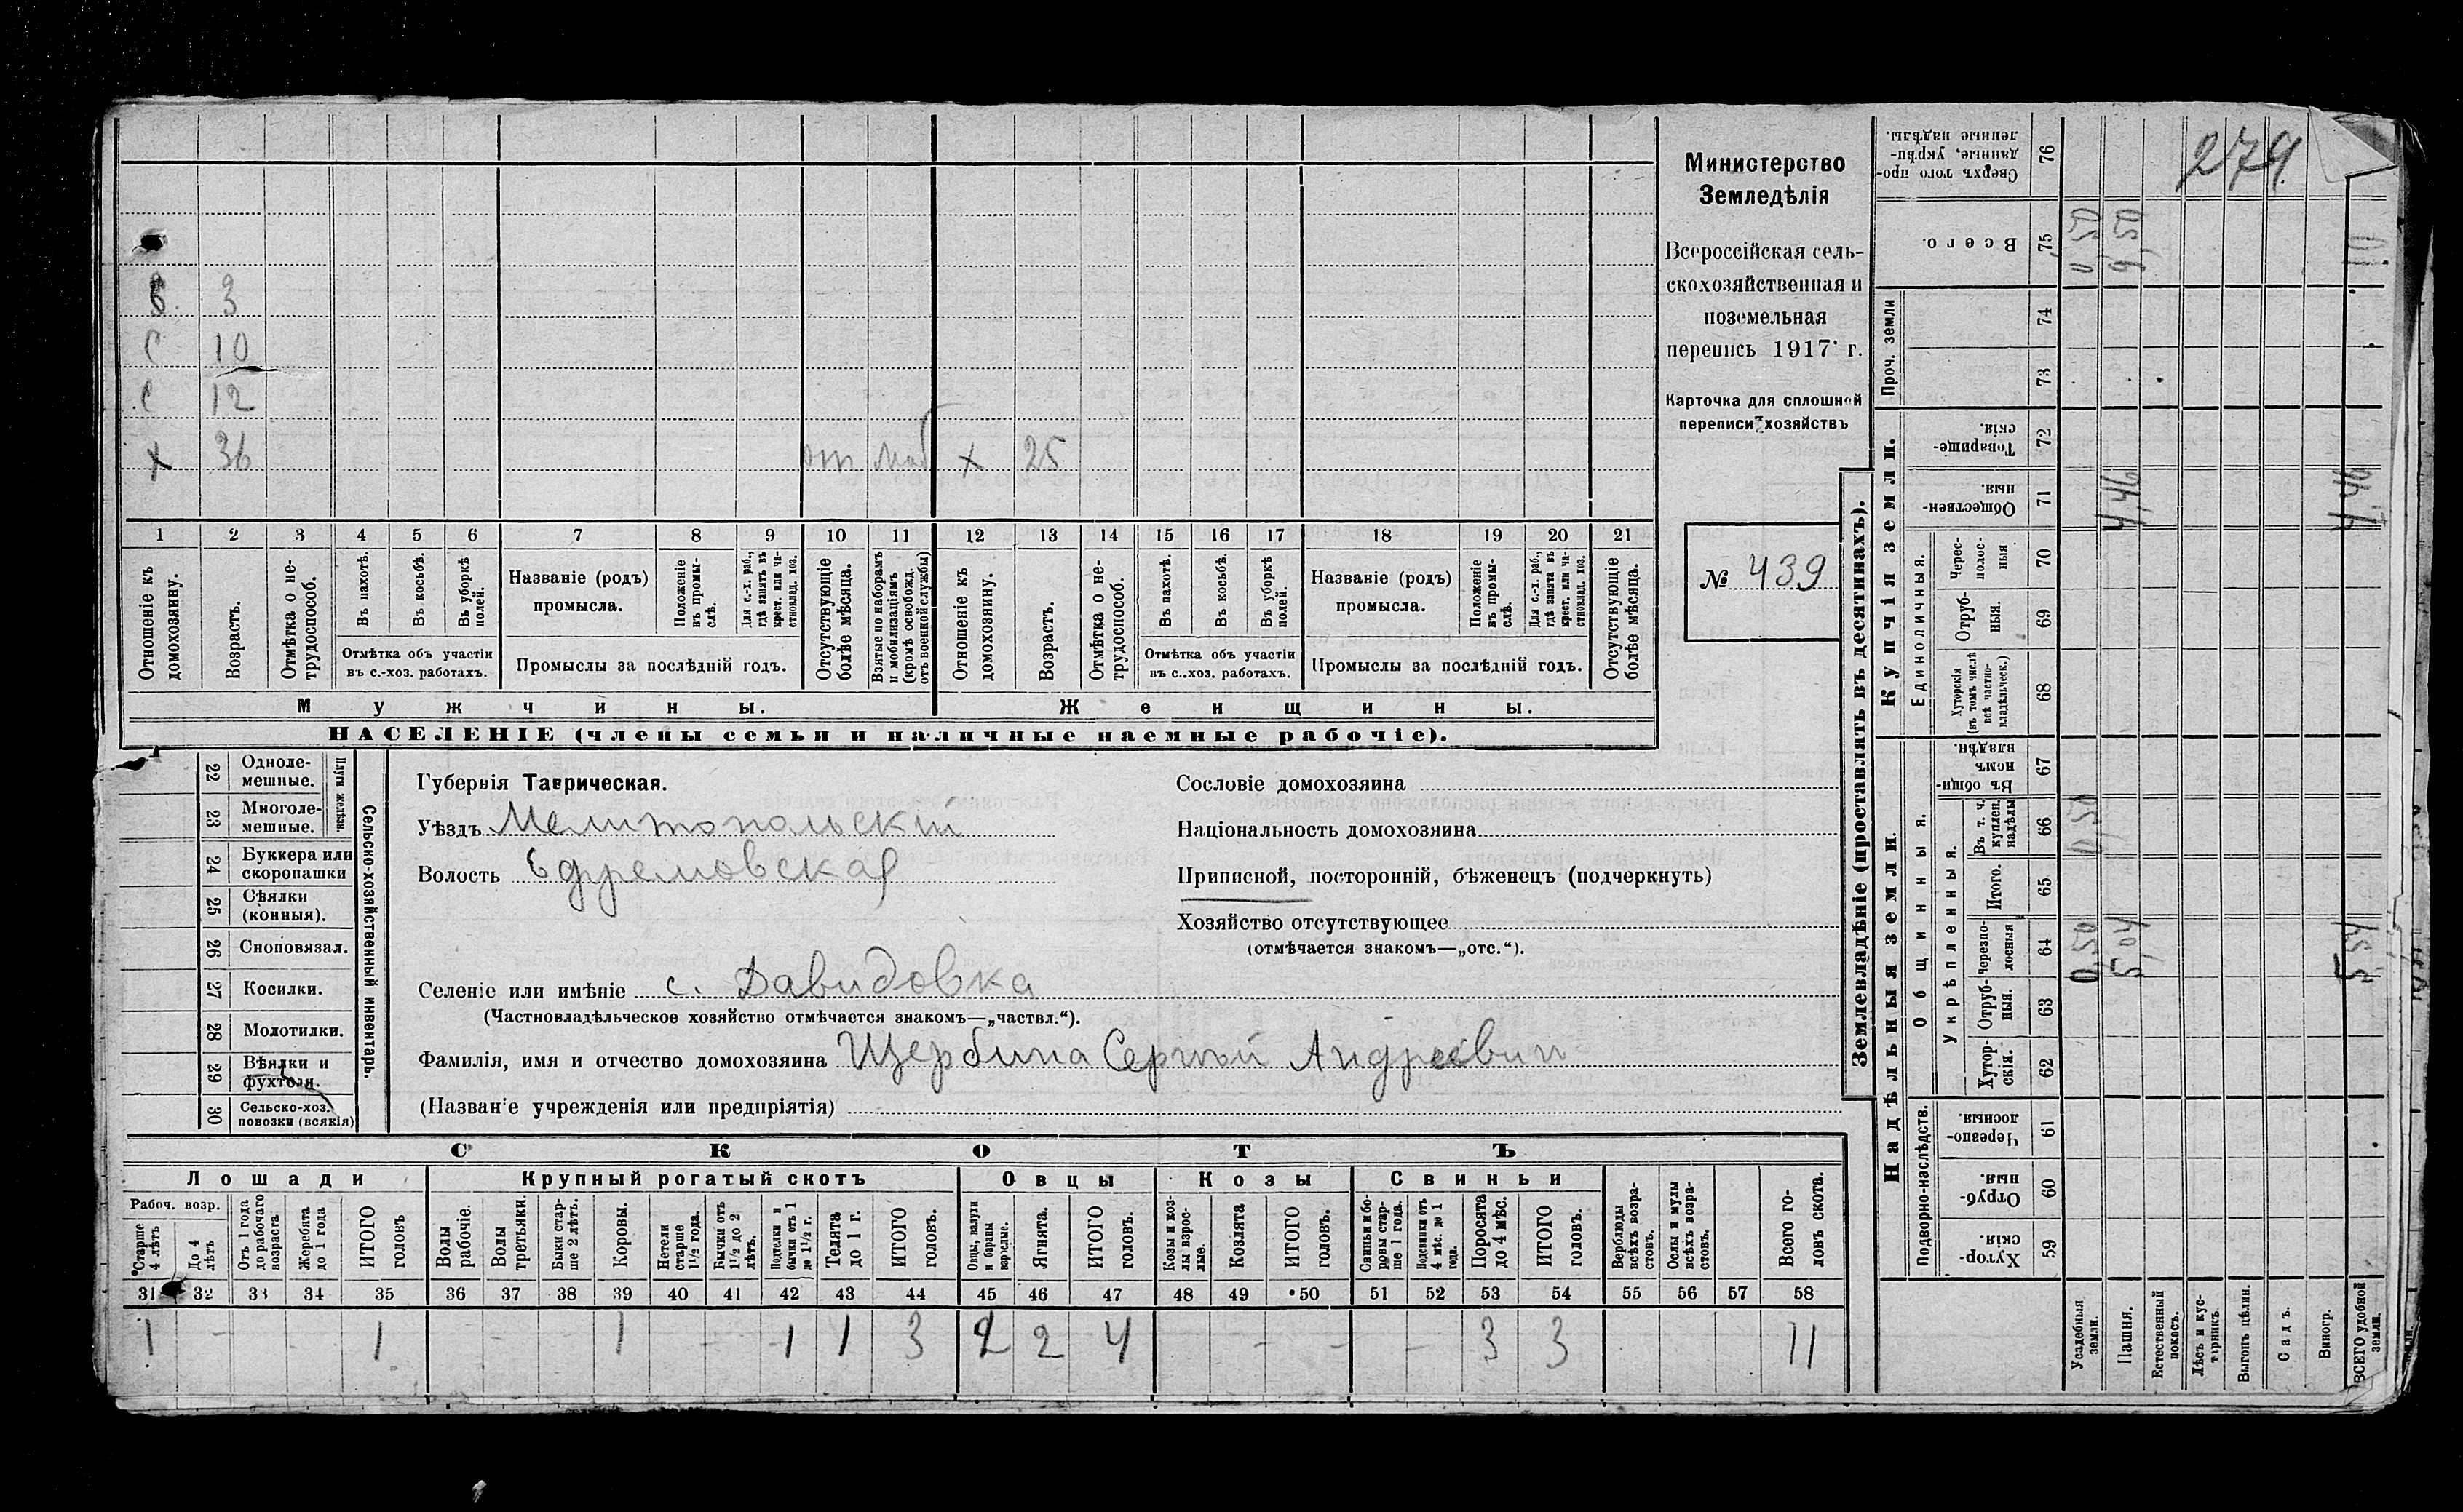 279.
Министерство
Земледѣлія
Всероссійская сель-
скохозяйственная и
поземельная
перепись 1917 г.
Карточка для сплошной
переписи хозяйствъ
№ 439
3
С 10
С 12
Х 36 Х 25
1 2 3 4 5 6 7 8 9 10 11 12 13 14 15 16 17 18 19 20 21
Отношеніе къ домохозяину.
Возрастъ.
Отмѣтка о не-трудоспособ.
Въ пахотѣ.
Въ косьбѣ.
Въ уборкѣ полей.
Отмѣтка объ участіи
въ с.-хоз. работахъ.
Названіе (родъ)
промысла.
Положеніе въ промы-слѣ.
Для с.-х. раб., гдѣ занятъ въ крест. или ча-стновлад. хоз.
Промыслы за послѣдній годъ.
Отсутствующіе болѣе мѣсяца.
Взятые по наборамъ и мобилизаціямъ (кромѣ освобожд. отъ военной службы)
Отношеніе къ домохозяину.
Возрастъ.
Отмѣтка о не-трудоспособ.
Въ пахотѣ.
Въ косьбѣ.
Въ уборкѣ полей.
Отмѣтка объ участіи
въ с..хоз. работахъ.
Названіе (родъ)
промысла.
Положеніе въ промы-слѣ.
Для с.-х. раб., гдѣ занята въ крест. или ча-стновлад. хоз.
Промыслы за послѣдній годъ.
Отсутствующіе болѣе мѣсяца.
Мужчины.
Женщины.
НАСЕЛЕНІЕ (члены семьи и наличные наемные рабочіе).
22 Одноле-мешные.
23 Многоле-мешные.
Плуги желѣзн.
24 Буккера или скоропашки
25 Сѣялки (конныя).
26 Сноповязал.
27 Косилки.
28 Молотилки.
29 Вѣялки и фухтеля.
30 Сельско-хоз. повозки (всякія)
Сельско-хозяйственный инвентарь.
Губернія Таврическая.
Уѣздъ Мелитопольскій
Волость Ефремовская
Селеніе или имѣніе с. Давидовка
(Частновладѣльческое хозяйство отмѣчается знакомъ—„частвл.“).
Фамилія, имя и отчество домохозяина Щербина Сергѣй Андреевич
(Названіе учрежденія или предпріятія)
Сословіе домохозяина
Національность домохозяина
Приписной, посторонній, бѣженецъ (подчеркнуть)
Хозяйство отсутствующее
(отмѣчается знакомъ—„отс.“).
СКОТЪ
Лошади
Крупный рогатый скотъ
Овцы
Козы
Свиньи
Рабоч. возр.
Старше 4 лѣтъ
До 4 лѣтъ
Отъ 1 года до рабочаго возраста
Жеребята до 1 года
ИТОГО головъ
Волы рабочіе.
Волы третьяки.
Быки стар-ше 2 лѣтъ.
Коровы.
Нетели старше 1½ года.
Бычки отъ 1½ до 2 лѣтъ.
Подтелки и бычки отъ 1 до 1½ г.
Телята до 1 г.
ИТОГО головъ.
Овцы, валухи и бараны взрослые.
Ягнята.
ИТОГО головъ.
Козы и коз-лы взрос-лые.
Козлята
ИТОГО головъ.
Свиньи и бо-ровы стар-ше 1 года.
Подсвинки отъ 4 мѣс. до 1 года.
Поросята до 4 мѣс.
ИТОГО головъ.
Верблюды всѣхъ возра-стовъ.
Ослы и мулы всѣхъ возра-стовъ.
Всего го-ловъ скота.
31 32 33 34 35 36 37 38 39 40 41 42 43 44 45 46 47 48 49 50 51 52 53 54 55 56 57 58
1 - 1 1 - - 1 1 3 2 2 4 - - - 3 3 11
Землевладѣніе (проставлять въ десятинахъ).
Купчія земли.
Надѣльныя земли.
Проч. земли
Единоличныя.
Общинныя.
Укрѣпленныя.
Подворно-наслѣдств.
Сверхъ того про-данные, укрѣп-ленные надѣлы. 76
Всего. 75 0,50 9,50
74
73
Товарище-скія. 72
Обществен-ныя. 71 4,46 4,46
Черес-полос-ныя 70
Отруб-ныя. 69
Хуторскія (въ томъ числѣ всѣ частно-владѣльческ.) 68
Въ общин-номъ владѣн. 67
Въ т. ч. куплен. надѣлы 66 0,50
Итого. 65
Черезпо-лосныя 64 0,50 5,04 5,54
Отруб-ныя. 63
Хутор-скія. 62
Черезпо-лосныя. 61
Отруб-ныя. 60
Хутор-скія. 59
Усадебныя земли.
Пашня.
Естественный покосъ.
Лѣсъ и кус-тарникъ.
Выгонъ цѣлин.
Садъ.
Виногр.
ВСЕГО удобной земли.